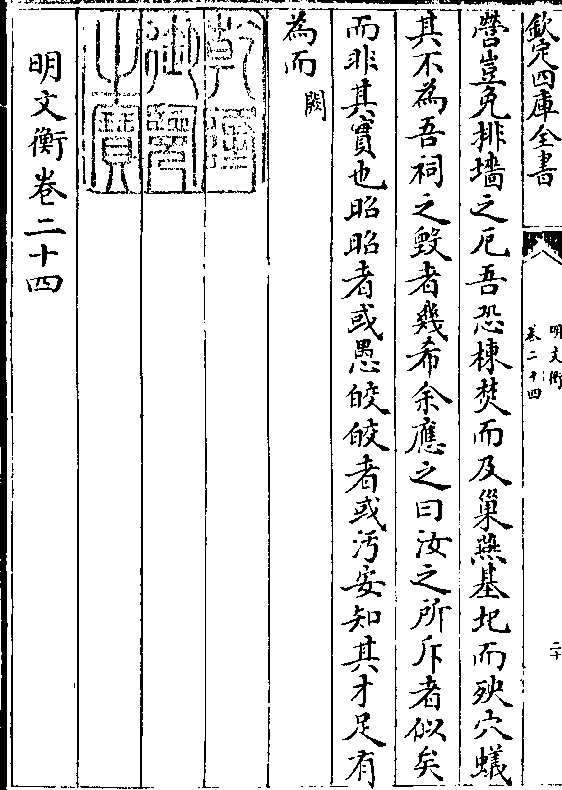 欽定四庫全書
明文衡
卷二十四
二十
營豈免排墻之厄吾恐棟焚而及巢燕基圯而殃穴蟻
其不為吾祠之毀者幾希余應之曰汝之所斥者似矣
而非其實也昭昭者或愚皎皎者或汚安知其才足有
為而闕
乾隆
御覽
之寶
明文衡卷二十四